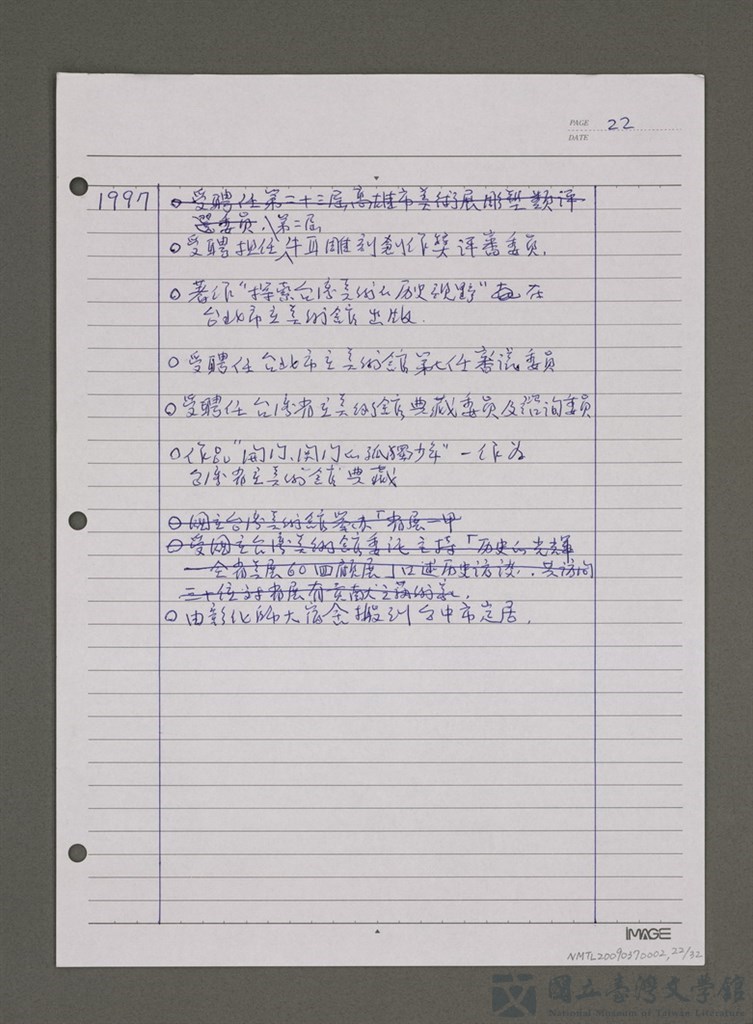 PAGE 22
DATE
1997 ○受聘任第二十三屆高雄市美術展彫塑類评
選委員
第二屆
○受聘担任牛耳雕刻創作獎评審委員.
○著作"探索台湾美術的历史視野" 在
台北市立美術館出版.
○受聘任台北市立美術館第七任審議委員
○受聘任台湾省立美術館典藏委員及諮询委員
○作品"開门、関门的孤獨少年"一作为
台湾省立美術館典藏
○国立台湾美術館举办「省展一甲
○受国立台湾美術館委託主持「历史的光輝
一全省美展60回顧展」口述历史访談,共访问
三十位对省展有貢献之藝術家.
○由彰化師大宿舍搬到台中市定居.
IMAGE
NMTL20090370002,22/32
國立臺灣文學館
National Museum of Taiwan Literature